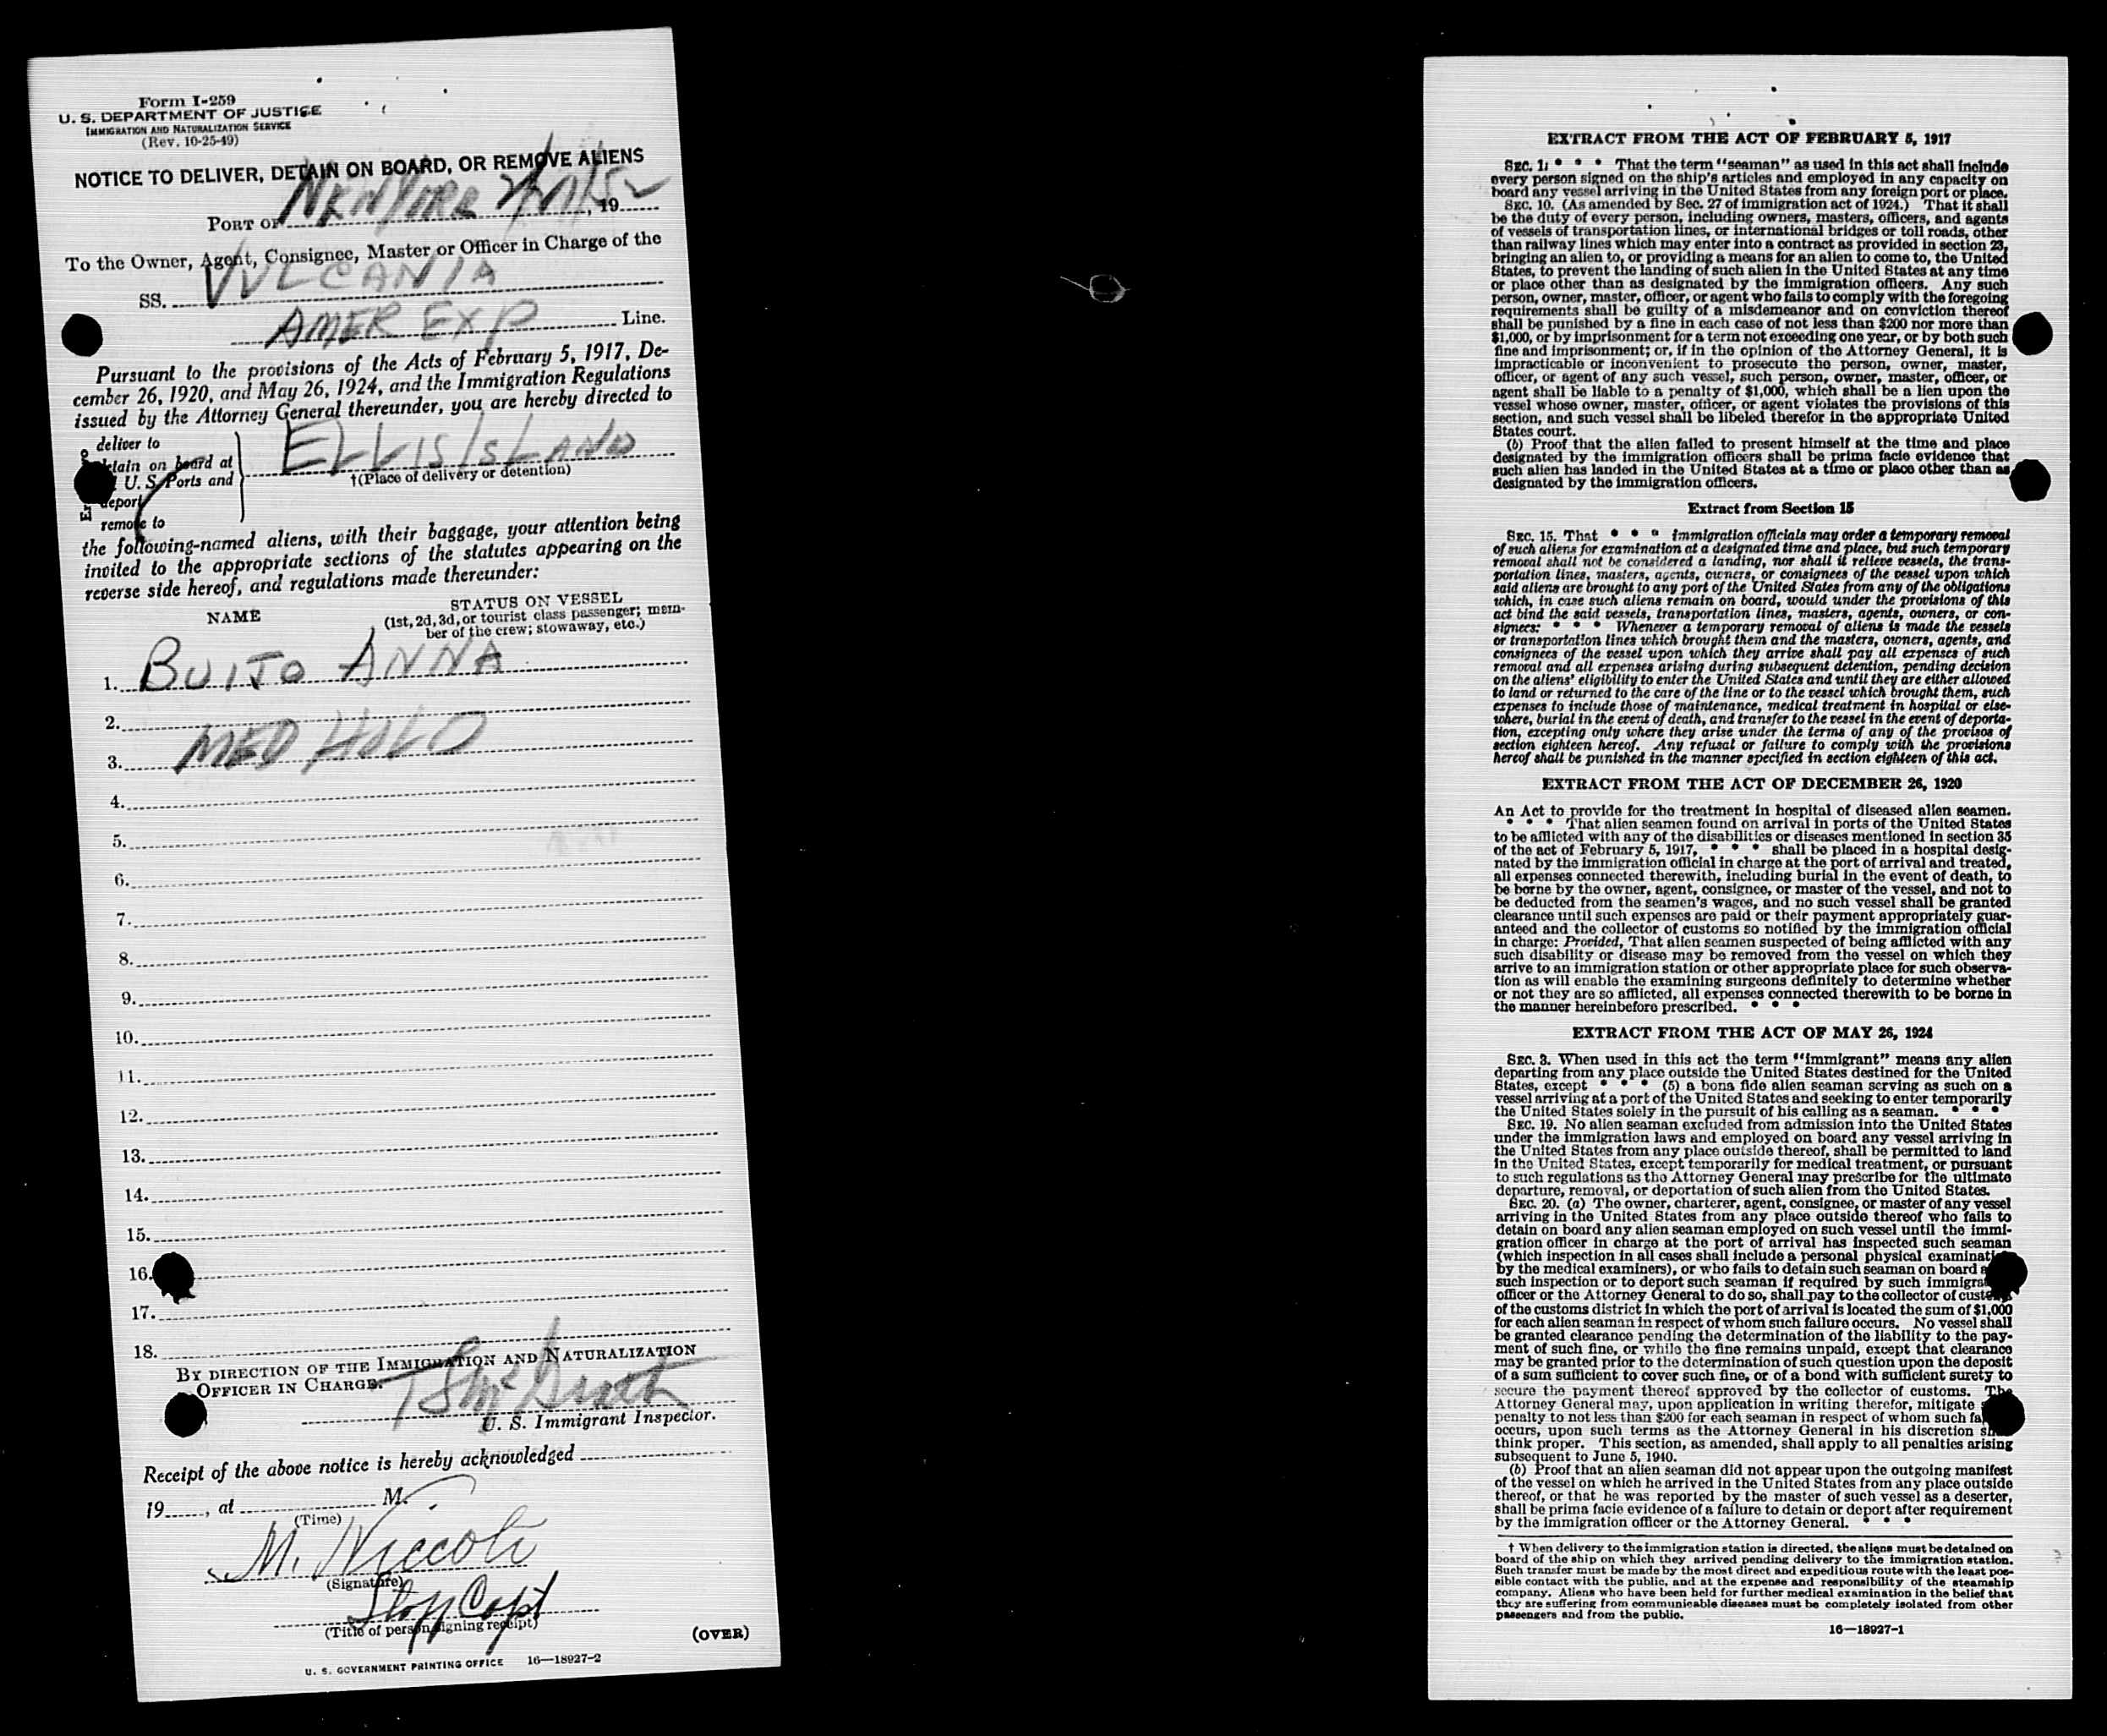 Form I-259
U. S. DEPARTMENT OF JUSTICE
IMMIGRATION AND NATURALIZATION SERVICE
(Rev. 10-25-49)
NOTICE TO DELIVER, DETAIN ON BOARD, OR REMOVE ALIENS
PORT OF New York , 19
To the Owner, Agent, Consignee, Master or Officer in Charge of the
SS. VULCANIA
AMER EXP Line.
Pursuant to the provisions of the Acts of February 5, 1917, De-
cember 26, 1920, and May 26, 1924, and the Immigration Regulations
issued by the Attorney General thereunder, you are hereby directed to
deliver to
on board at
U. S. Ports and
remove to
ELLIS ISLAND
†(Place of delivery or detention)
the following-named aliens, with their baggage, your attention being
invited to the appropriate sections of the statutes appearing on the
reverse side hereof, and regulations made thereunder:
NAME
STATUS ON VESSEL
(1st, 2d, 3d, or tourist class passenger; mem-
ber of the crew; stowaway, etc.)
1. BUITO ANNA
2.
3. MED HOLD
4.
5.
6.
7.
8.
9.
10.
11.
12.
13.
14.
15.
16.
17.
18.
BY DIRECTION OF THE IMMIGRATION AND NATURALIZATION
OFFICER IN CHARGE.
U. S. Immigrant Inspector.
Receipt of the above notice is hereby acknowledged
19, at M.
(Time)
M. Niccoli
(Signature)
Capt
(Title of person signing receipt)
(OVER)
U. S. GOVERNMENT PRINTING OFFICE 16—18927-2
EXTRACT FROM THE ACT OF FEBRUARY 5, 1917
SEC. 1: * * * That the term "seaman" as used in this act shall include
every person signed on the ship's articles and employed in any capacity on
board any vessel arriving in the United States from any foreign port or place.
SEC. 10. (As amended by Sec. 27 of immigration act of 1924.) That it shall
be the duty of every person, including owners, masters, officers, and agents
of vessels of transportation lines, or international bridges or toll roads, other
than railway lines which may enter into a contract as provided in section 23,
bringing an alien to, or providing a means for an alien to come to, the United
States, to prevent the landing of such alien in the United States at any time
or place other than as designated by the immigration officers. Any such
person, owner, master, officer, or agent who fails to comply with the foregoing
requirements shall be guilty of a misdemeanor and on conviction thereof
shall be punished by a fine in each case of not less than $200 nor more than
$1,000, or by imprisonment for a term not exceeding one year, or by both such
fine and imprisonment; or, if in the opinion of the Attorney General, it is
impracticable or inconvenient to prosecute the person, owner, master,
officer, or agent of any such vessel, such person, owner, master, officer, or
agent shall be liable to a penalty of $1,000, which shall be a lien upon the
vessel whose owner, master, officer, or agent violates the provisions of this
section, and such vessel shall be libeled therefor in the appropriate United
States court.
(b) Proof that the alien failed to present himself at the time and place
designated by the immigration officers shall be prima facie evidence that
such alien has landed in the United States at a time or place other than as
designated by the immigration officers.
Extract from Section 15
SEC. 15. That * * * immigration officials may order a temporary removal
of such aliens for examination at a designated time and place, but such temporary
removal shall not be considered a landing, nor shall it relieve vessels, the trans-
portation lines, masters, agents, owners, or consignees of the vessel upon which
said aliens are brought to any port of the United States from any of the obligations
which, in case such aliens remain on board, would under the provisions of this
act bind the said vessels, transportation lines, masters, agents, owners, or con-
signees: * * * Whenever a temporary removal of aliens is made the vessels
or transportation lines which brought them and the masters, owners, agents, and
consignees of the vessel upon which they arrive shall pay all expenses of such
removal and all expenses arising during subsequent detention, pending decision
on the aliens' eligibility to enter the United States and until they are either allowed
to land or returned to the care of the line or to the vessel which brought them, such
expenses to include those of maintenance, medical treatment in hospital or else-
where, burial in the event of death, and transfer to the vessel in the event of deporta-
tion, excepting only where they arise under the terms of any of the provisos of
section eighteen hereof. Any refusal or failure to comply with the provisions
hereof shall be punished in the manner specified in section eighteen of this act.
EXTRACT FROM THE ACT OF DECEMBER 26, 1920
An Act to provide for the treatment in hospital of diseased alien seamen.
* * * That alien seamen found on arrival in ports of the United States
to be afflicted with any of the disabilities or diseases mentioned in section 35
of the act of February 5, 1917, * * * shall be placed in a hospital desig-
nated by the immigration official in charge at the port of arrival and treated,
all expenses connected therewith, including burial in the event of death, to
be borne by the owner, agent, consignee, or master of the vessel, and not to
be deducted from the seamen's wages, and no such vessel shall be granted
clearance until such expenses are paid or their payment appropriately guar-
anteed and the collector of customs so notified by the immigration official
in charge: Provided, That alien seamen suspected of being afflicted with any
such disability or disease may be removed from the vessel on which they
arrive to an immigration station or other appropriate place for such observa-
tion as will enable the examining surgeons definitely to determine whether
or not they are so afflicted, all expenses connected therewith to be borne in
the manner hereinbefore prescribed. * * *
EXTRACT FROM THE ACT OF MAY 26, 1924
SEC. 3. When used in this act the term "immigrant" means any alien
departing from any place outside the United States destined for the United
States, except * * * (5) a bona fide alien seaman serving as such on a
vessel arriving at a port of the United States and seeking to enter temporarily
the United States solely in the pursuit of his calling as a seaman. * * *
SEC. 19. No alien seaman excluded from admission into the United States
under the immigration laws and employed on board any vessel arriving in
the United States from any place outside thereof, shall be permitted to land
in the United States, except temporarily for medical treatment, or pursuant
to such regulations as the Attorney General may prescribe for the ultimate
departure, removal, or deportation of such alien from the United States.
SEC. 20. (a) The owner, charterer, agent, consignee, or master of any vessel
arriving in the United States from any place outside thereof who fails to
detain on board any alien seaman employed on such vessel until the immi-
gration officer in charge at the port of arrival has inspected such seaman
(which inspection in all cases shall include a personal physical examinati
by the medical examiners), or who fails to detain such seaman on board a
such inspection or to deport such seaman if required by such immigrat
officer or the Attorney General to do so, shall pay to the collector of customs
of the customs district in which the port of arrival is located the sum of $1,000
for each alien seaman in respect of whom such failure occurs. No vessel shall
be granted clearance pending the determination of the liability to the pay-
ment of such fine, or while the fine remains unpaid, except that clearance
may be granted prior to the determination of such question upon the deposit
of a sum sufficient to cover such fine, or of a bond with sufficient surety to
secure the payment thereof approved by the collector of customs. The
Attorney General may, upon application in writing therefor, mitigate
penalty to not less than $200 for each seaman in respect of whom such fa
occurs, upon such terms as the Attorney General in his discretion
think proper. This section, as amended, shall apply to all penalties arising
subsequent to June 5, 1940.
(b) Proof that an alien seaman did not appear upon the outgoing manifest
of the vessel on which he arrived in the United States from any place outside
thereof, or that he was reported by the master of such vessel as a deserter,
shall be prima facie evidence of a failure to detain or deport after requirement
by the immigration officer or the Attorney General. * * *
† When delivery to the immigration station is directed, the aliens must be detained on
board of the ship on which they arrived pending delivery to the immigration station.
Such transfer must be made by the most direct and expeditious route with the least pos-
sible contact with the public, and at the expense and responsibility of the steamship
company. Aliens who have been held for further medical examination in the belief that
they are suffering from communicable diseases must be completely isolated from other
passengers and from the public.
16—18927-1